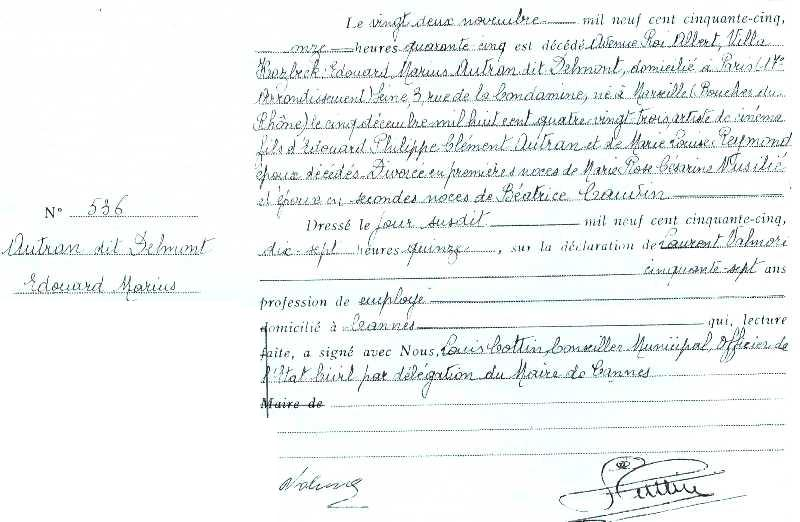 Le vingt deux novembre mil neuf cent cinquante-cinq,
onze heures quarante cinq est décédé Avenue Roi Albert, Villa
Kazbeck: Edouard Marius Autran dit Delmont, domicilié à Paris (17e
Arrondissement) Seine, 3, rue de la Condamine, né à Marseille (Bouches du
Rhône) le cinq décembre mil huit cent quatre vingt trois, artiste de cinéma
fils d'Edouard Philippe Clément Autran et de Marie Louise Reymond
époux décédés. Divorcé en premières noces de Marie Rose Césarine
et époux en secondes noces de Béatrice
Dressé le jour susdit mil neuf cent cinquante-cinq,
dix-sept heures quinze, sur la déclaration de Laurent Valmori
cinquante-sept ans
profession de employé
domicilié à Cannes qui, lecture
faite, a signé avec Nous, Louis Cottin, Conseiller Municipal, Officier de
l'Etat Civil par délégation du Maire de Cannes
Maire de
N° 536
Autran dit Delmont
Edouard Marius